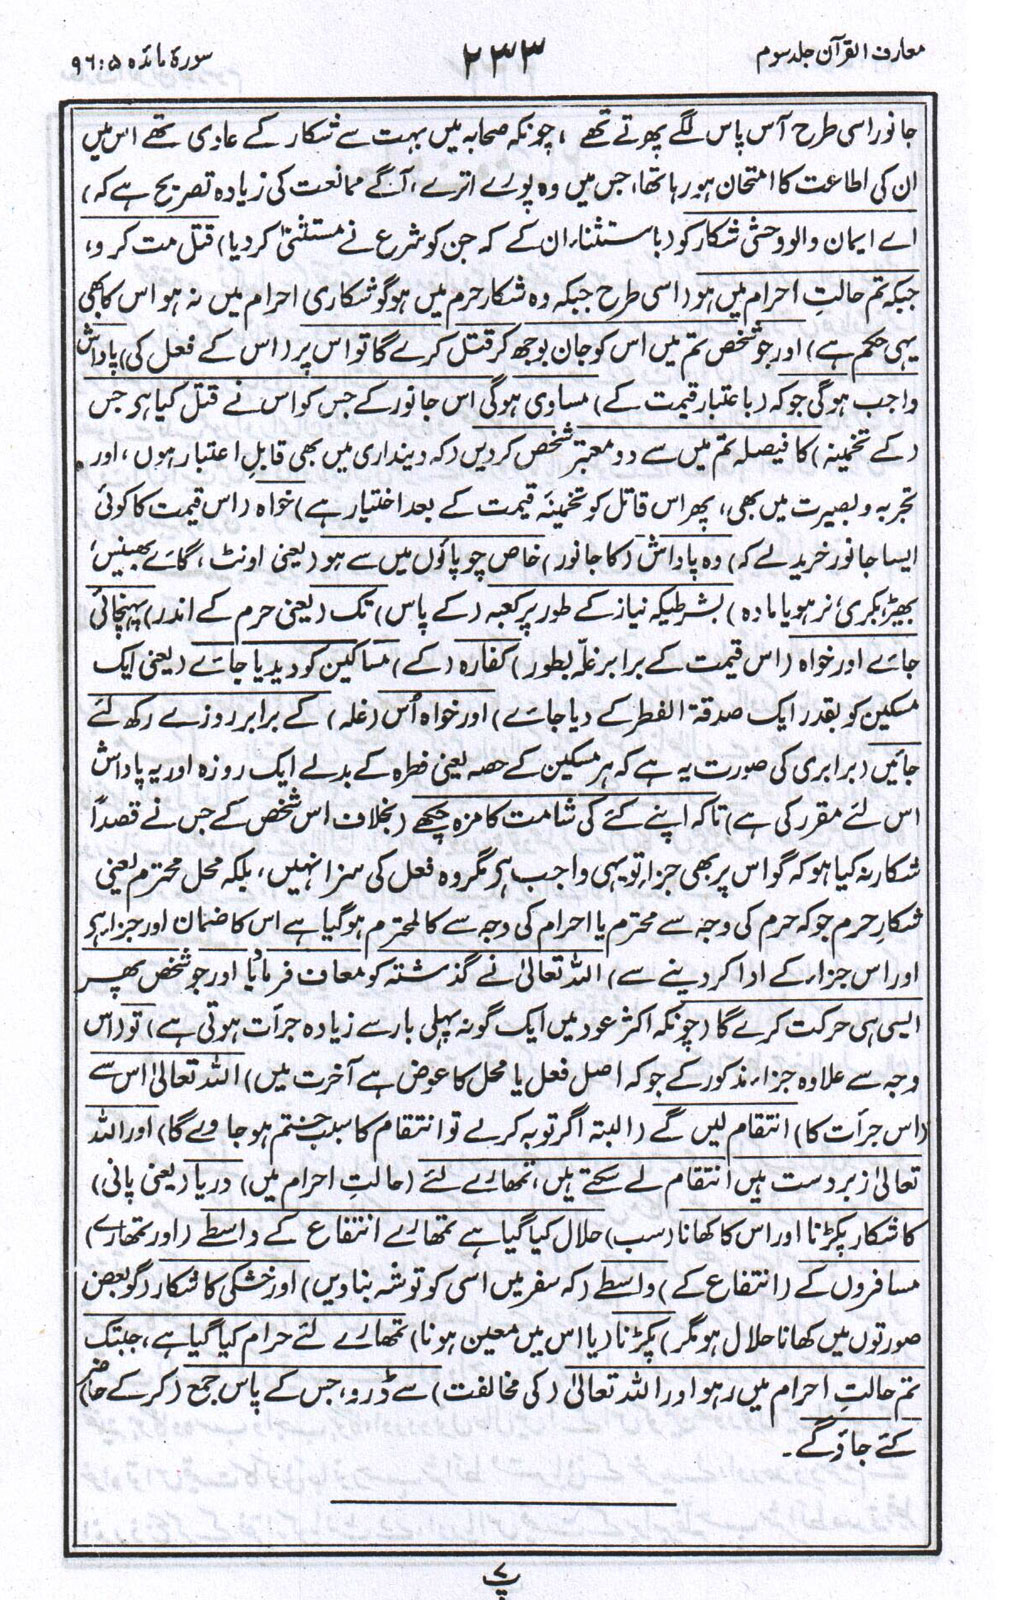 معارف القرآن جلد سوم
۲۳۳
سورۃ مائدہ ۵ : ۹۶
جانور اسی طرح آس پاس لگے پھرتے تھے ، چونکہ صحابہ میں بہت سے شکار کے عادی تھے اس میں
ان کی اطاعت کا امتحان ہو رہا تھا، جس میں وہ پورے اترے ، آگے ممانعت کی زیادہ تصریح ہے کہ)
اے ایمان والو وحشی شکار کو (باستثناء ان کے کہ جن کو شرع نے مستثنیٰ کر دیا) قتل مت کرو،
جبکہ تم حالتِ احرام میں ہو (اسی طرح جبکہ وہ شکار حرم میں ہو گو شکاری احرام میں نہ ہو اس کا بھی
یہی حکم ہے) اور جو شخص تم میں اس کو جان بوجھ کر قتل کرے گا تو اس پر (اس کے فعل کی) پاداش
واجب ہوگی جو کہ (باعتبار قیمت کے) مساوی ہوگی اس جانور کے جس کو اس نے قتل کیا ہر جس
(کے تخمینہ) کا فیصلہ تم میں سے دو معتبر شخص کر دیں (کہ دینداری میں بھی قابلِ اعتبار ہوں ، اور
تجربہ و بصیرت میں بھی، پھر اس قاتل کو تخمینۂ قیمت کے بعد اختیار ہے) خواہ (اس قیمت کا کوئی
ایسا جانور خرید لے کہ) وہ پاداش (کا جانور) خاص چوپاؤں میں سے ہو (یعنی اونٹ ، گائے بھینس،
بھیڑ، بکری، نر ہو یا مادہ) بشرطیکہ نیاز کے طور پر کعبہ (کے پاس) تک (یعنی حرم کے اندر) پہنچائی
جائے اور خواہ (اس قیمت کے برابر غلّہ بطور) کفارہ (کے) مساکین کو دیدیا جائے (یعنی ایک
مسکین کو بقدر ایک صدقۃ الفطر کے دیا جائے) اور خواہ اُس (غلہ) کے برابر روزے رکھ لئے
جائیں (برابری کی صورت یہ ہے کہ ہر مسکین کے حصہ یعنی فطرہ کے بدلے ایک روزہ اور یہ پاداش
اس لئے مقرر کی ہے) تاکہ اپنے کئے کی شامت کا مزہ چکھے (بخلاف اس شخص کے جس نے قصداً
شکار نہ کیا ہو کہ گو اس پر بھی جزاء تو یہی واجب ہر مگر وہ فعل کی سزا نہیں ، بلکہ محل محترم یعنی
شکارِ حرم جو کہ حرم کی وجہ سے محترم یا احرام کی وجہ سے کالمحترم ہو گیا ہے اس کا ضمان اور جزاء ہر
اور اس جزاء کے ادا کر دینے سے) اللہ تعالیٰ نے گذشتہ کو معاف فرمایا اور جو شخص پھر
ایسی ہی حرکت کرے گا (چونکہ اکثر عود میں ایک گونہ پہلی بار سے زیادہ جرأت ہوتی ہے) تو (اس
وجہ سے علاوہ جزاء مذکور کے جو کہ اصل فعل یا محل کا عوض ہے آخرت میں) اللہ تعالیٰ اس سے
(اس جرأت کا) انتقام لیں گے (البتہ اگر توبہ کر لے تو انتقام کا سبب ختم ہو جاوے گا) اور اللہ
تعالیٰ زبردست ہیں انتقام لے سکتے ہیں، تمھارے لئے (حالتِ احرام میں) دریا (یعنی پانی)
کا شکار پکڑنا اور اس کا کھانا (سب) حلال کیا گیا ہے تمھارے انتفاع کے واسطے (اور تمھارے)
مسافروں کے (انتفاع کے) واسطے (کہ سفر میں اسی کو توشہ بناویں) اور خشکی کا شکار (گو بعض
صورتوں میں کھانا حلال ہو مگر) پکڑنا (یا اس میں معین ہونا) تمھارے لئے حرام کیا گیا ہے، جبتک
تم حالتِ احرام میں رہو اور اللہ تعالیٰ (کی مخالفت) سے ڈرو، جس کے پاس جمع (کرکے حاضر)
کئے جاؤ گے ۔
پ۷